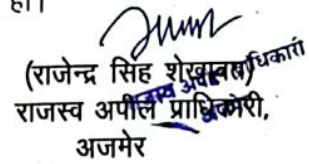 हो।
(राजेन्द्र सिंह शेखावत)
राजस्व अपील प्राधिकारी,
अजमेर